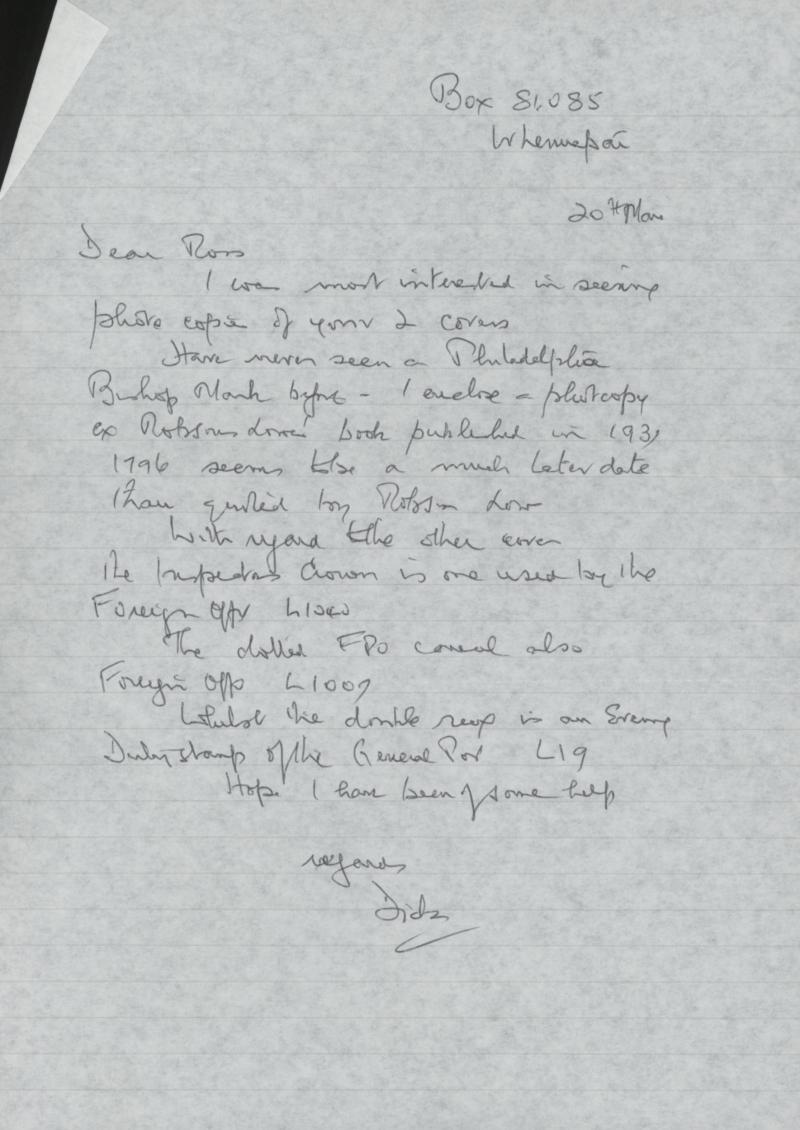 Box 81,085
Whenuapai
20th Mar
Dear Ross
I was most interested in seeing
photo copies of your 2 covers
Have never seen a Philadelphia
Bishop Mark before - I enclose a photcopy
ex Robson Lowe's book published in 193
1796 seems to be a much later date
than quoted by Robson Lowe
With regard to the other cover
the Inspectors Crown is one used by the
Foreign Office L1040
The dotted FPO cancel also
Foreign Office L1009
Whilst the double ring is an Evening
Duty stamp of the General Post L19
Hope I have been of some help
regards
Dick